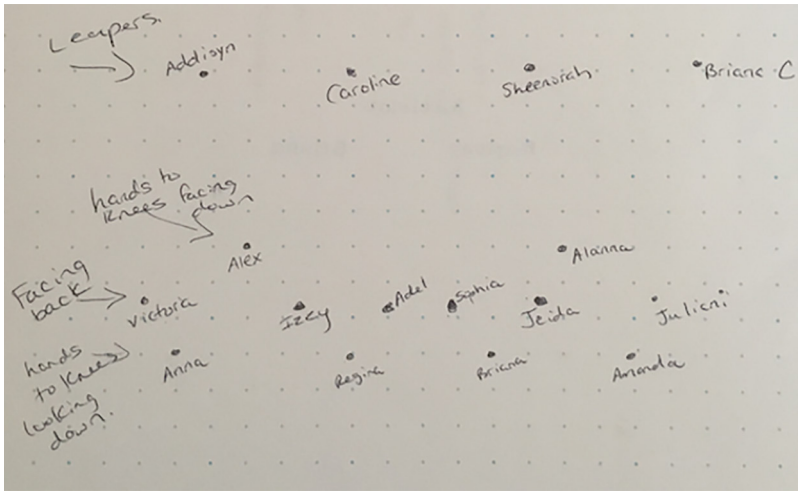 Leapers
Addisyn Caroline Sheenarah Briana C
hands to
knees facing
down
Alex Alanna
Facing
back
Victoria Izzy Adel Sophia Jeida Juliani
hands
to knees
looking
down.
Anna Regina Briana Amanda